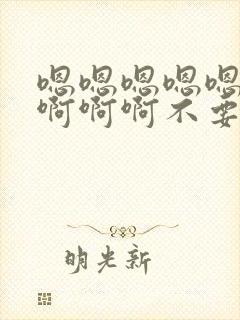 嗯嗯嗯嗯嗯
啊啊啊不要
明光新